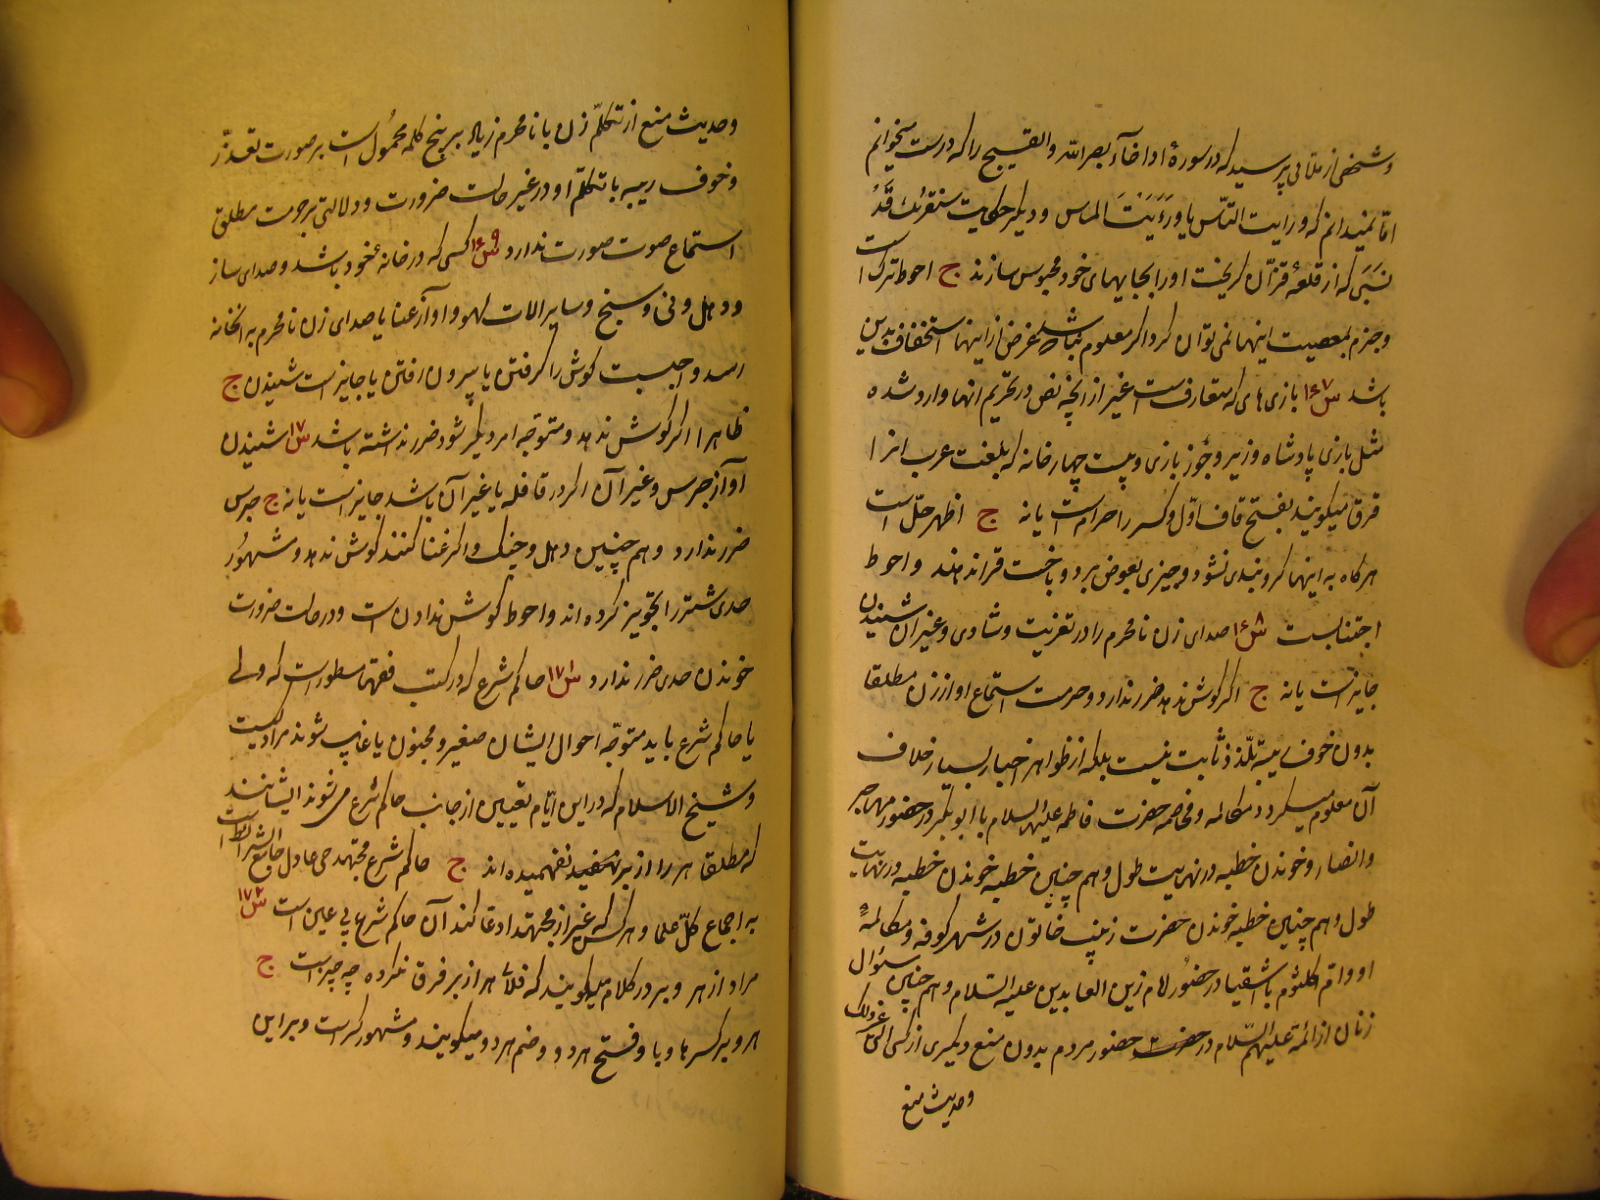 وشخصی از ملائی پرسید که در سورهٔ اذا جآء بصر الله والقبیح را که درست میخوانم
اما نمیدانم که و رایت الناس یا وَرَءَیَتَ الماس و دیگر حکایت سنقرئك قَدُ
نسَبَی که از قلعهٔ قزآن کریخت اورا بجایهای خود محبوس سازند ج احوط ترک است
وجزم بمعصیت اینها نمی توان کرد اکر معلوم نباشد غرض از اینها استخفاف بدین
باشد س۱۶۷ بازی های که متعارفست غیر از انچه نص در تحریم انها وارد شده
مثل بازی پادشاه وزیر و جوز بازی و بیست چهار خانه که بلغت عرب انرا
قرق میکویند بفتح قاف اوّل وکسر را حرام است یا نه ج اظهر حلّ است
هرکاه به اینها کروبندی نشود و چیزی بعوض برد و باخت قرار ندهند و احوط
اجتنابست س۱۶۸ صدای زن نامحرم را در تعزیت و شادی و غیر آن شنیدن
جایز است یا نه ج اکر کوش ندهد ضرر ندارد و حرمت استماع اواز زن مطلقا
بدون خوف ریبه و تلذذ ثابت نیست بلکه از ظواهر اخبار بسیار خلاف
آن معلوم میکردد مکالمه و مخاصمه حضرت فاطمه علیها السلام با ابوبکر در حضور مهاجر
وانصار و خوندن خطبه در نهایت طول و هم چنین خطبه خوندن خطبه در نهایت
طول و هم چنین خطبه خوندن حضرت زینب خاتون در شهر کوفه و مکالمهٔ
او و ام کلثوم با اشقیا در حضور امام زین العابدین علیه السلام و هم چنین سئوال
زنان از ائمة علیهم السلام در حضرت حضور مردم بدون منع و دیکری از کسی الی غیر ذلک
وحدیث منع
وحدیث منع از تکلّم زن با نامحرم زیاد بر پنج کلمه محمُول است بر صورت تعذّر
وخوف ریبه با تکلّم او در غیر حالت ضرورت و دلالتی بر حرمت مطلق
استماع صوت صورت ندارد س۱۶۹ کسی که در خانهٔ خود باشد و صدای ساز
و دهل و نی و سنج و سایر الات لهو و اواز غنا یا صدای زن نامحرم به انخانه
رسد واجبست کوش را کرفتن یا بیرون رفتن یا جایز است شنیدن ج
ظاهرا اکر کوش ندهد و متوجّه امر دیکر شود ضرر نداشته باشد س۱۷۰ شنیدن
آواز جرس و غیر آن اکر در قافله یا غیر آن باشد جایز است یا نه ج جرس
ضرر ندارد وهم چنین دهل و چنک و اکر غنا کنند کوش ندهد و مشهُور
حدی شتر را تجویز کرده اند و احوط کوش ندادن است و در حالت ضرورت
خوندن حدی ضرر ندارد س۱۷۱ حاکم شرع که در کتب فقها مسطور است که ولی
یا حاکم شرع باید متوجّه احوال ایشان صغیر و مجنون یا غایب شوند مراد کیست
وشیخ الاسلام که در این ایّام تعیین از جانب حاکم شرع می شوند ایشانند
که مطلقا هر را از بر نفهمیده اند ج حاکم شرع مجتهد حی عادل جامع الشرائط است
به اجماع کلّ علما و هر کس که غیر از مجتهد ادعا کند آن حاکم شرع بی عین است س۱۷۲
مراد از هر و بر در کلام میکویند که فلان هر از بر فرق نکرده چه چیز است ج
هر و بر کسر ها و با و فتح هر دو و ضم هر دو میکویند و مشهور کسر است و بر این